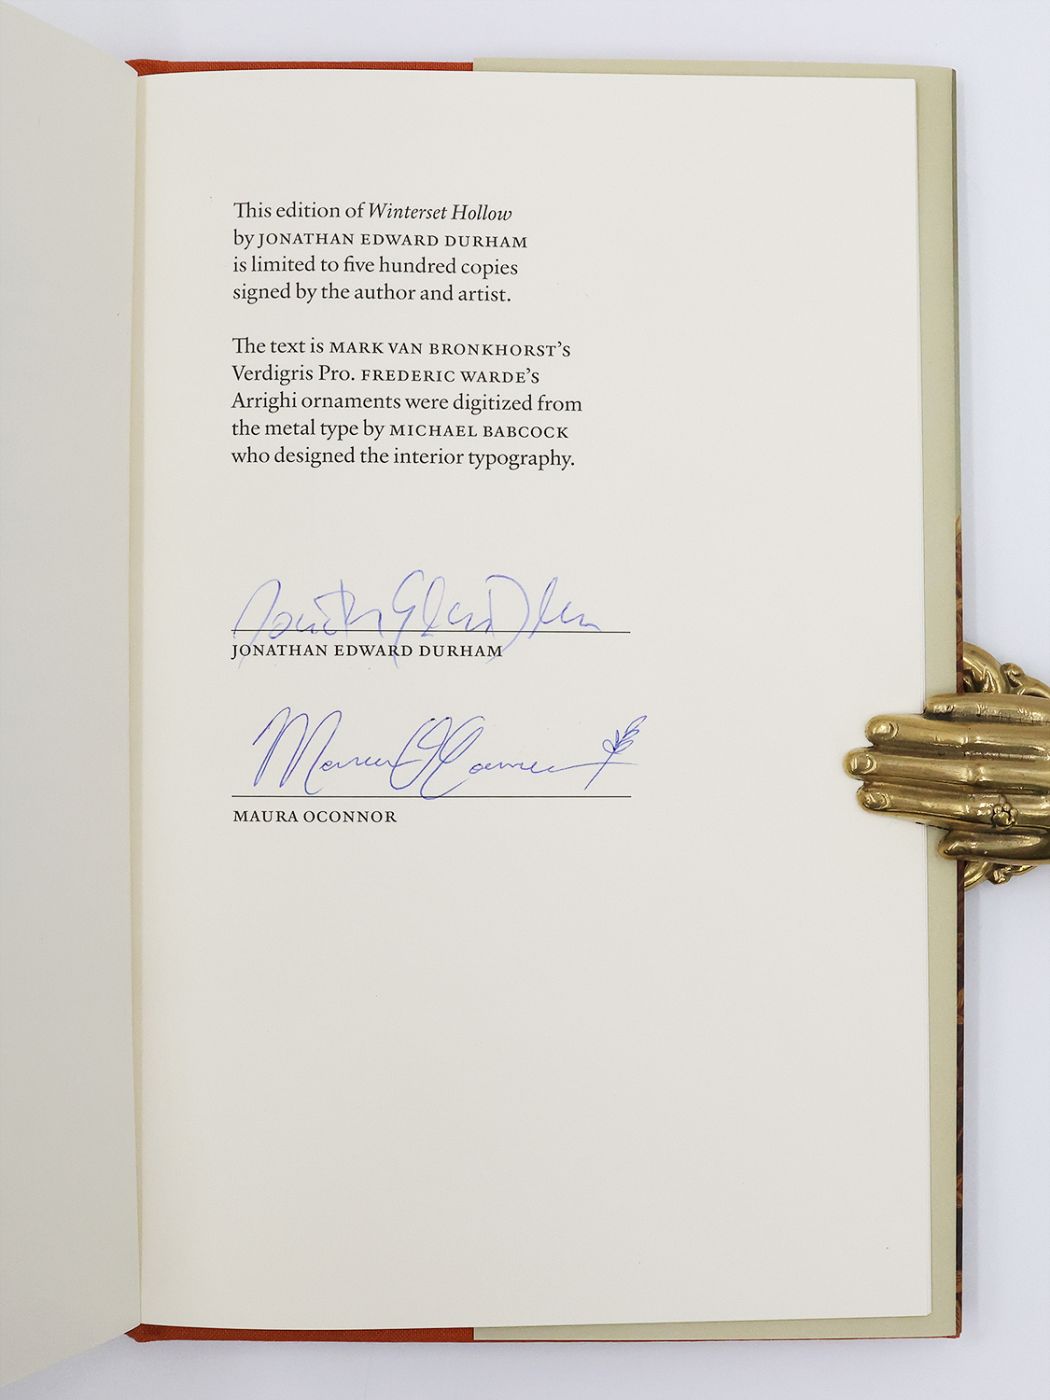 This edition of Winterset Hollow
by JONATHAN EDWARD DURHAM
is limited to five hundred copies
signed by the author and artist.
The text is MARK VAN BRONKHORST'S
Verdigris Pro. FREDERIC WARDE'S
Arrighi ornaments were digitized from
the metal type by MICHAEL BABCOCK
who designed the interior typography.
JONATHAN EDWARD DURHAM
Maura OConnor
MAURA OCONNOR